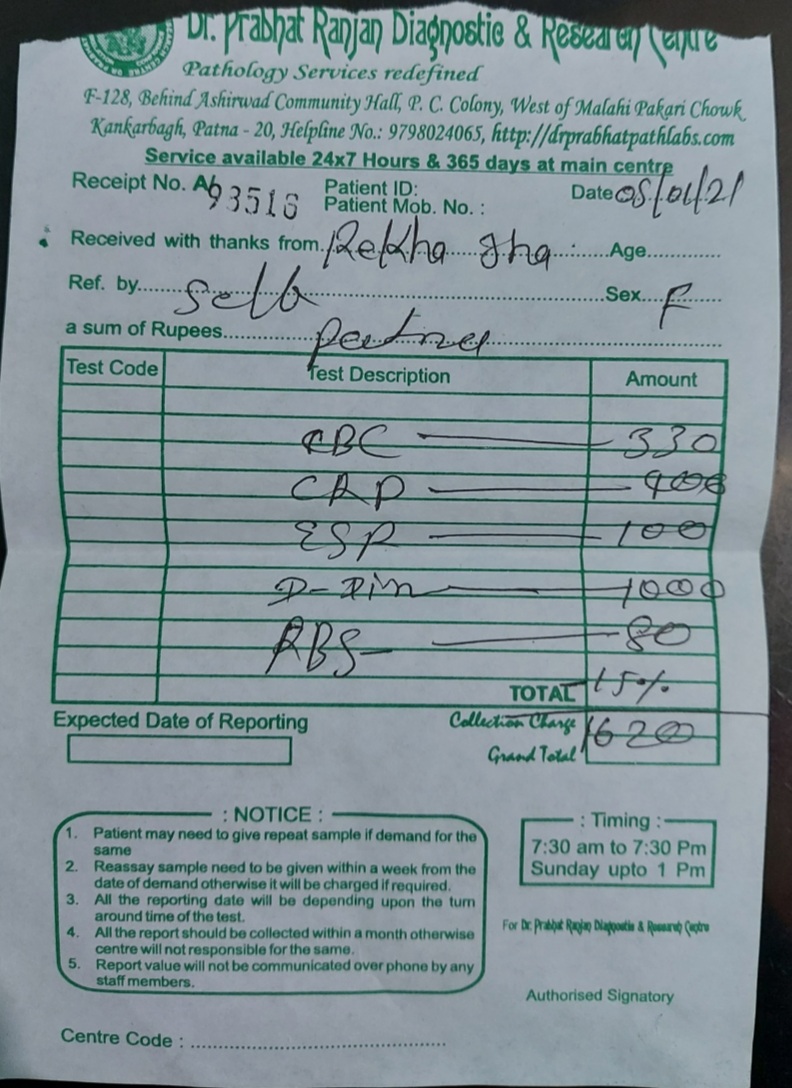 Dr. Prabhat Ranjan Diagnostic & Research Centre
Pathology Services redefined
F-128, Behind Ashirwad Community Hall, P. C. Colony, West of Malahi Pakari Chowk
Kankarbagh, Patna - 20, Helpline No.: 9798024065, http://drprabhatpathlabs.com
Service available 24x7 Hours & 365 days at main centre
Receipt No. A/93516 Patient ID: Date 05/01/21
Patient Mob. No. :
Received with thanks from. Rekha Jha Age
Ref. by Self Sex F
a sum of Rupees Patna
Test Code Test Description Amount
CBC 330
CRP 400
ESR 100
D-Dim 1000
RBS 80
TOTAL 15%
Collection Charge 1620
Grand Total
Expected Date of Reporting
: NOTICE :
1. Patient may need to give repeat sample if demand for the
same
2. Reassay sample need to be given within a week from the
date of demand otherwise it will be charged if required.
3. All the reporting date will be depending upon the turn
around time of the test.
4. All the report should be collected within a month otherwise
centre will not responsible for the same.
5. Report value will not be communicated over phone by any
staff members.
: Timing :
7:30 am to 7:30 Pm
Sunday upto 1 Pm
For Dr. Prabhat Ranjan Diagnostic & Research Centre
Authorised Signatory
Centre Code :